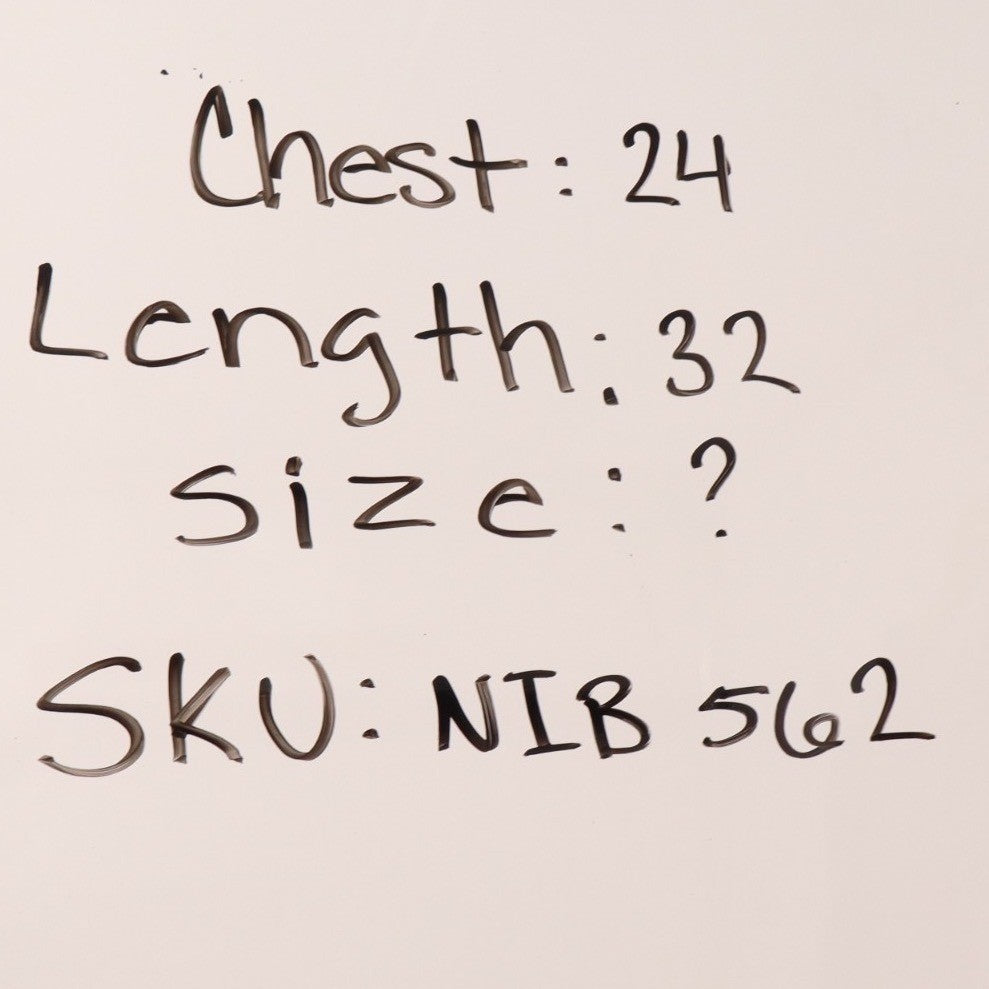 Chest: 24
Length: 32
Size: ?
SKU: NIB 562